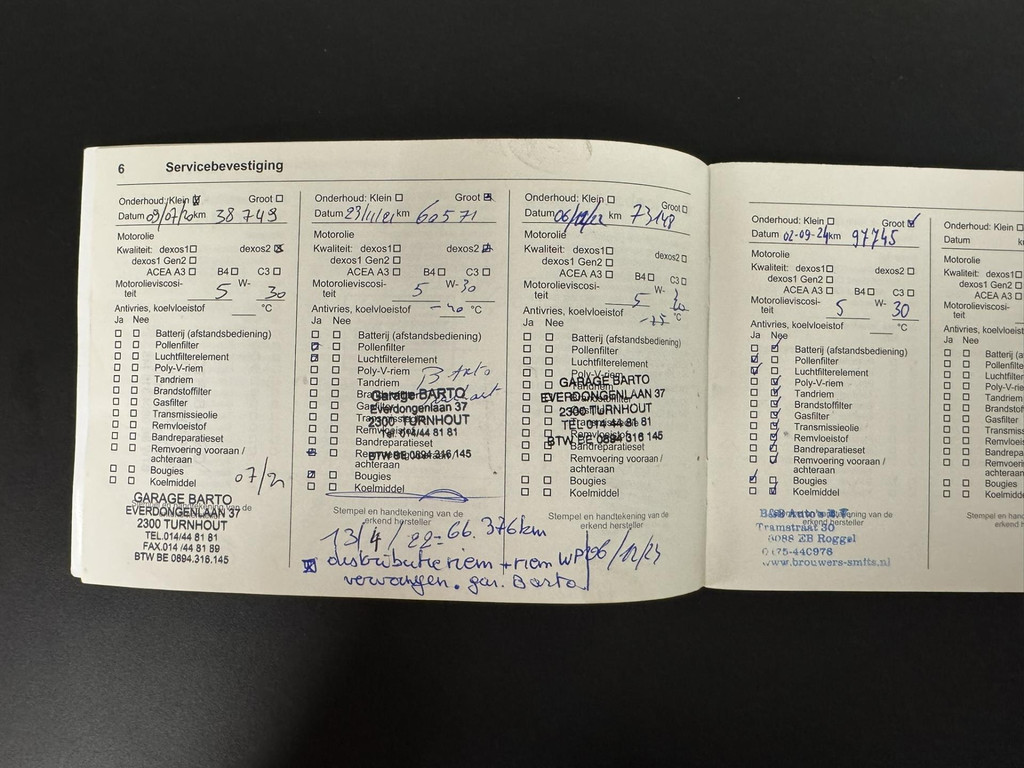 6 Servicebevestiging
Onderhoud: Klein Groot
Datum 09/07/20 km 38 749
Motorolie
Kwaliteit: dexos1 dexos2
dexos1 Gen2
ACEA A3 B4 C3
Motorolieviscosi-
teit 5 W- 30
Antivries, koelvloeistof °C
Ja Nee
Batterij (afstandsbediening)
Pollenfilter
Luchtfilterelement
Poly-V-riem
Tandriem
Brandstoffilter
Gasfilter
Transmissieolie
Remvloeistof
Bandreparatieset
Remvoering vooraan /
achteraan
Bougies
Koelmiddel
07/21
GARAGE BARTO
EVERDONGENLAAN 37
2300 TURNHOUT
TEL.014/44 81 81
FAX.014 /44 81 89
BTW BE 0894.316.145
Onderhoud: Klein Groot
Datum 23/11/21 km 60571
Motorolie
Kwaliteit: dexos1 dexos2
dexos1 Gen2
ACEA A3 B4 C3
Motorolieviscosi-
teit 5 W- 30
Antivries, koelvloeistof -40 °C
Ja Nee
Batterij (afstandsbediening)
Pollenfilter
Luchtfilterelement
Poly-V-riem
Tandriem
Barto
Garage BARTO
Everdongenlaan 37
2300 TURNHOUT
Tel. 014/44 81 81
Bandreparatieset
BTW BE 0894.316.145
achteraan
Bougies
Koelmiddel
Stempel en handtekening van de
erkend hersteller
13/4/22 = 66.376km
distributieriem + riem WP
vervangen. gar. Barto
Onderhoud: Klein Groot
Datum 06/12/22 km 73148
Motorolie
Kwaliteit: dexos1 dexos2
dexos1 Gen2
ACEA A3 B4 C3
Motorolieviscosi-
teit 5 W- 30
Antivries, koelvloeistof °C
Ja Nee
Batterij (afstandsbediening)
Pollenfilter
Luchtfilterelement
Poly-V-riem
GARAGE BARTO
EVERDONGENLAAN 37
2300 TURNHOUT
TEL 014 44 81 81
BTW BE 0894 316 145
Bandreparatieset
Remvoering vooraan /
achteraan
Bougies
Koelmiddel
Stempel en handtekening van de
erkend hersteller
06/12/23
Onderhoud: Klein Groot
Datum 02-09-24 km 97745
Motorolie
Kwaliteit: dexos1 dexos2
dexos1 Gen2
ACEA A3 B4 C3
Motorolieviscosi-
teit 5 W- 30
Antivries, koelvloeistof °C
Ja Nee
Batterij (afstandsbediening)
Pollenfilter
Luchtfilterelement
Poly-V-riem
Tandriem
Brandstoffilter
Gasfilter
Transmissieolie
Remvloeistof
Bandreparatieset
Remvoering vooraan /
achteraan
Bougies
Koelmiddel
Auto's B.V.
Tramstraat 30
6088 EB Roggel
0475-440976
www.brouwers-smits.nl
Onderhoud: Klein
Datum
Motorolie
Kwaliteit: dexos1
dexos1 Gen2
ACEA A3
Motorolieviscosi-
teit
Antivries, koelvloeist
Ja Nee
Batterij (a
Pollenfilter
Luchtfilte
Poly-V-rie
Tandriem
Brandsto
Gasfilter
Transmis
Remvloei
Bandrepa
Remvoeri
achteraan
Bougies
Koelmidd
Stempel en hand
erkend